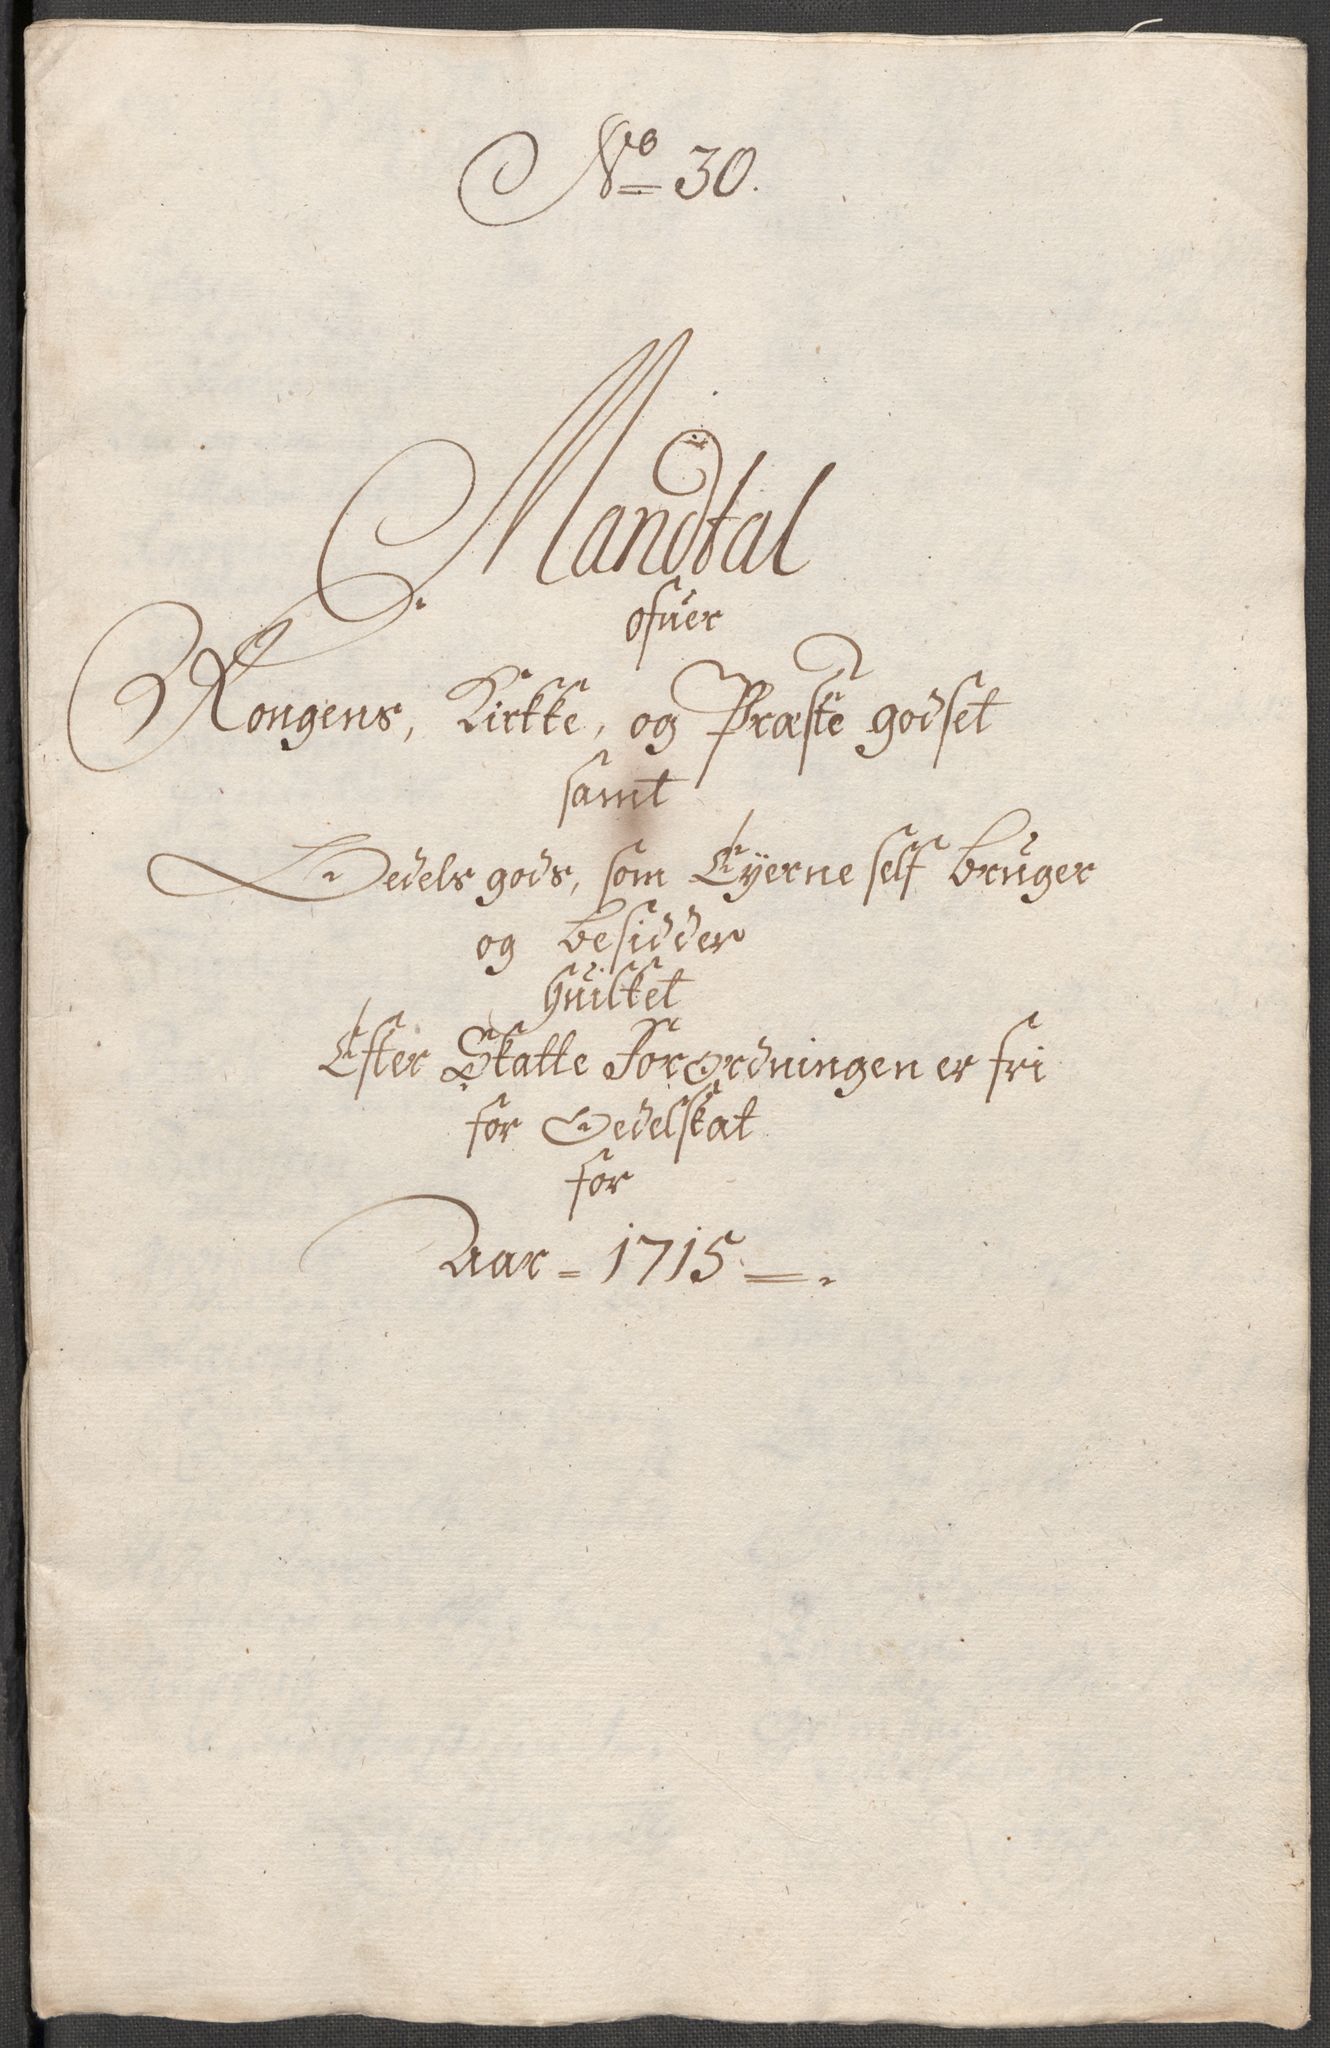 No 30.
Mandtal
ofuer
Kongens, Kirkke, og Præste godset
samt
Oedels gods, som Eÿerne self bruger
og besidder
huilket
Efter Skatte Forordningen er fri
for Oedelskat
for
Aar - 1715 -.